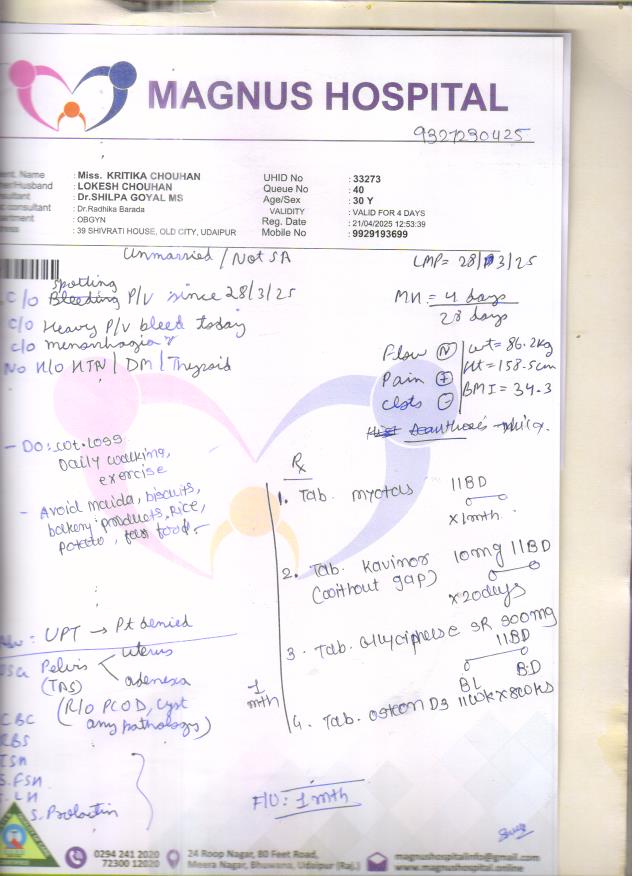 MAGNUS HOSPITAL
9327230425
ent. Name : Miss. KRITIKA CHOUHAN
her/Husband : LOKESH CHOUHAN
sultant : Dr.SHILPA GOYAL MS
t consultant : Dr.Radhika Barada
artment : OBGYN
ress : 39 SHIVRATI HOUSE, OLD CITY, UDAIPUR
UHID No : 33273
Queue No : 40
Age/Sex : 30 Y
VALIDITY : VALID FOR 4 DAYS
Reg. Date : 21/04/2025 12:53:39
Mobile No : 9929193699
Unmarried / Not SA
LMP = 28/3/25
spotting
C/o Bleeding P/V since 28/3/25
c/o Heavy P/V bleed today
c/o menorrhagia
No H/o HTN | DM | Thyroid
MH = 4 days
28 days
Flow N
Pain +
Clots -
wt = 86.2kg
Ht = 158.5cm
BMI = 34.3
- DO: wt. loss
Daily walking,
exercise
- Avoid maida, biscuits,
bakery products, Rice,
potato, fast food.
Rx
1. Tab. myotas 1 1 BD
x 1 mth.
2. Tab. Kavinor 10mg 1 1 BD
(without gap)
x 20 days
3. Tab. Glyciphage SR 500mg
1 1 BD
BL BD
1 mth
4. Tab. osteon D3 1 1 wk x 8 wks
Adv: UPT → Pt denied
USG Pelvis uterus
(TAS) adenexa
(R/O PCOD, Cyst
any pathology)
CBC
RBS
TSH
S. FSH
S. LH
S. Prolactin
F/U: 1 mth
0294 241 2020
72300 12020
24 Roop Nagar, 80 Feet Road,
Meera Nagar, Bhuwana, Udaipur (Raj.)
magnushospitalinfo@gmail.com
www.magnushospital.online